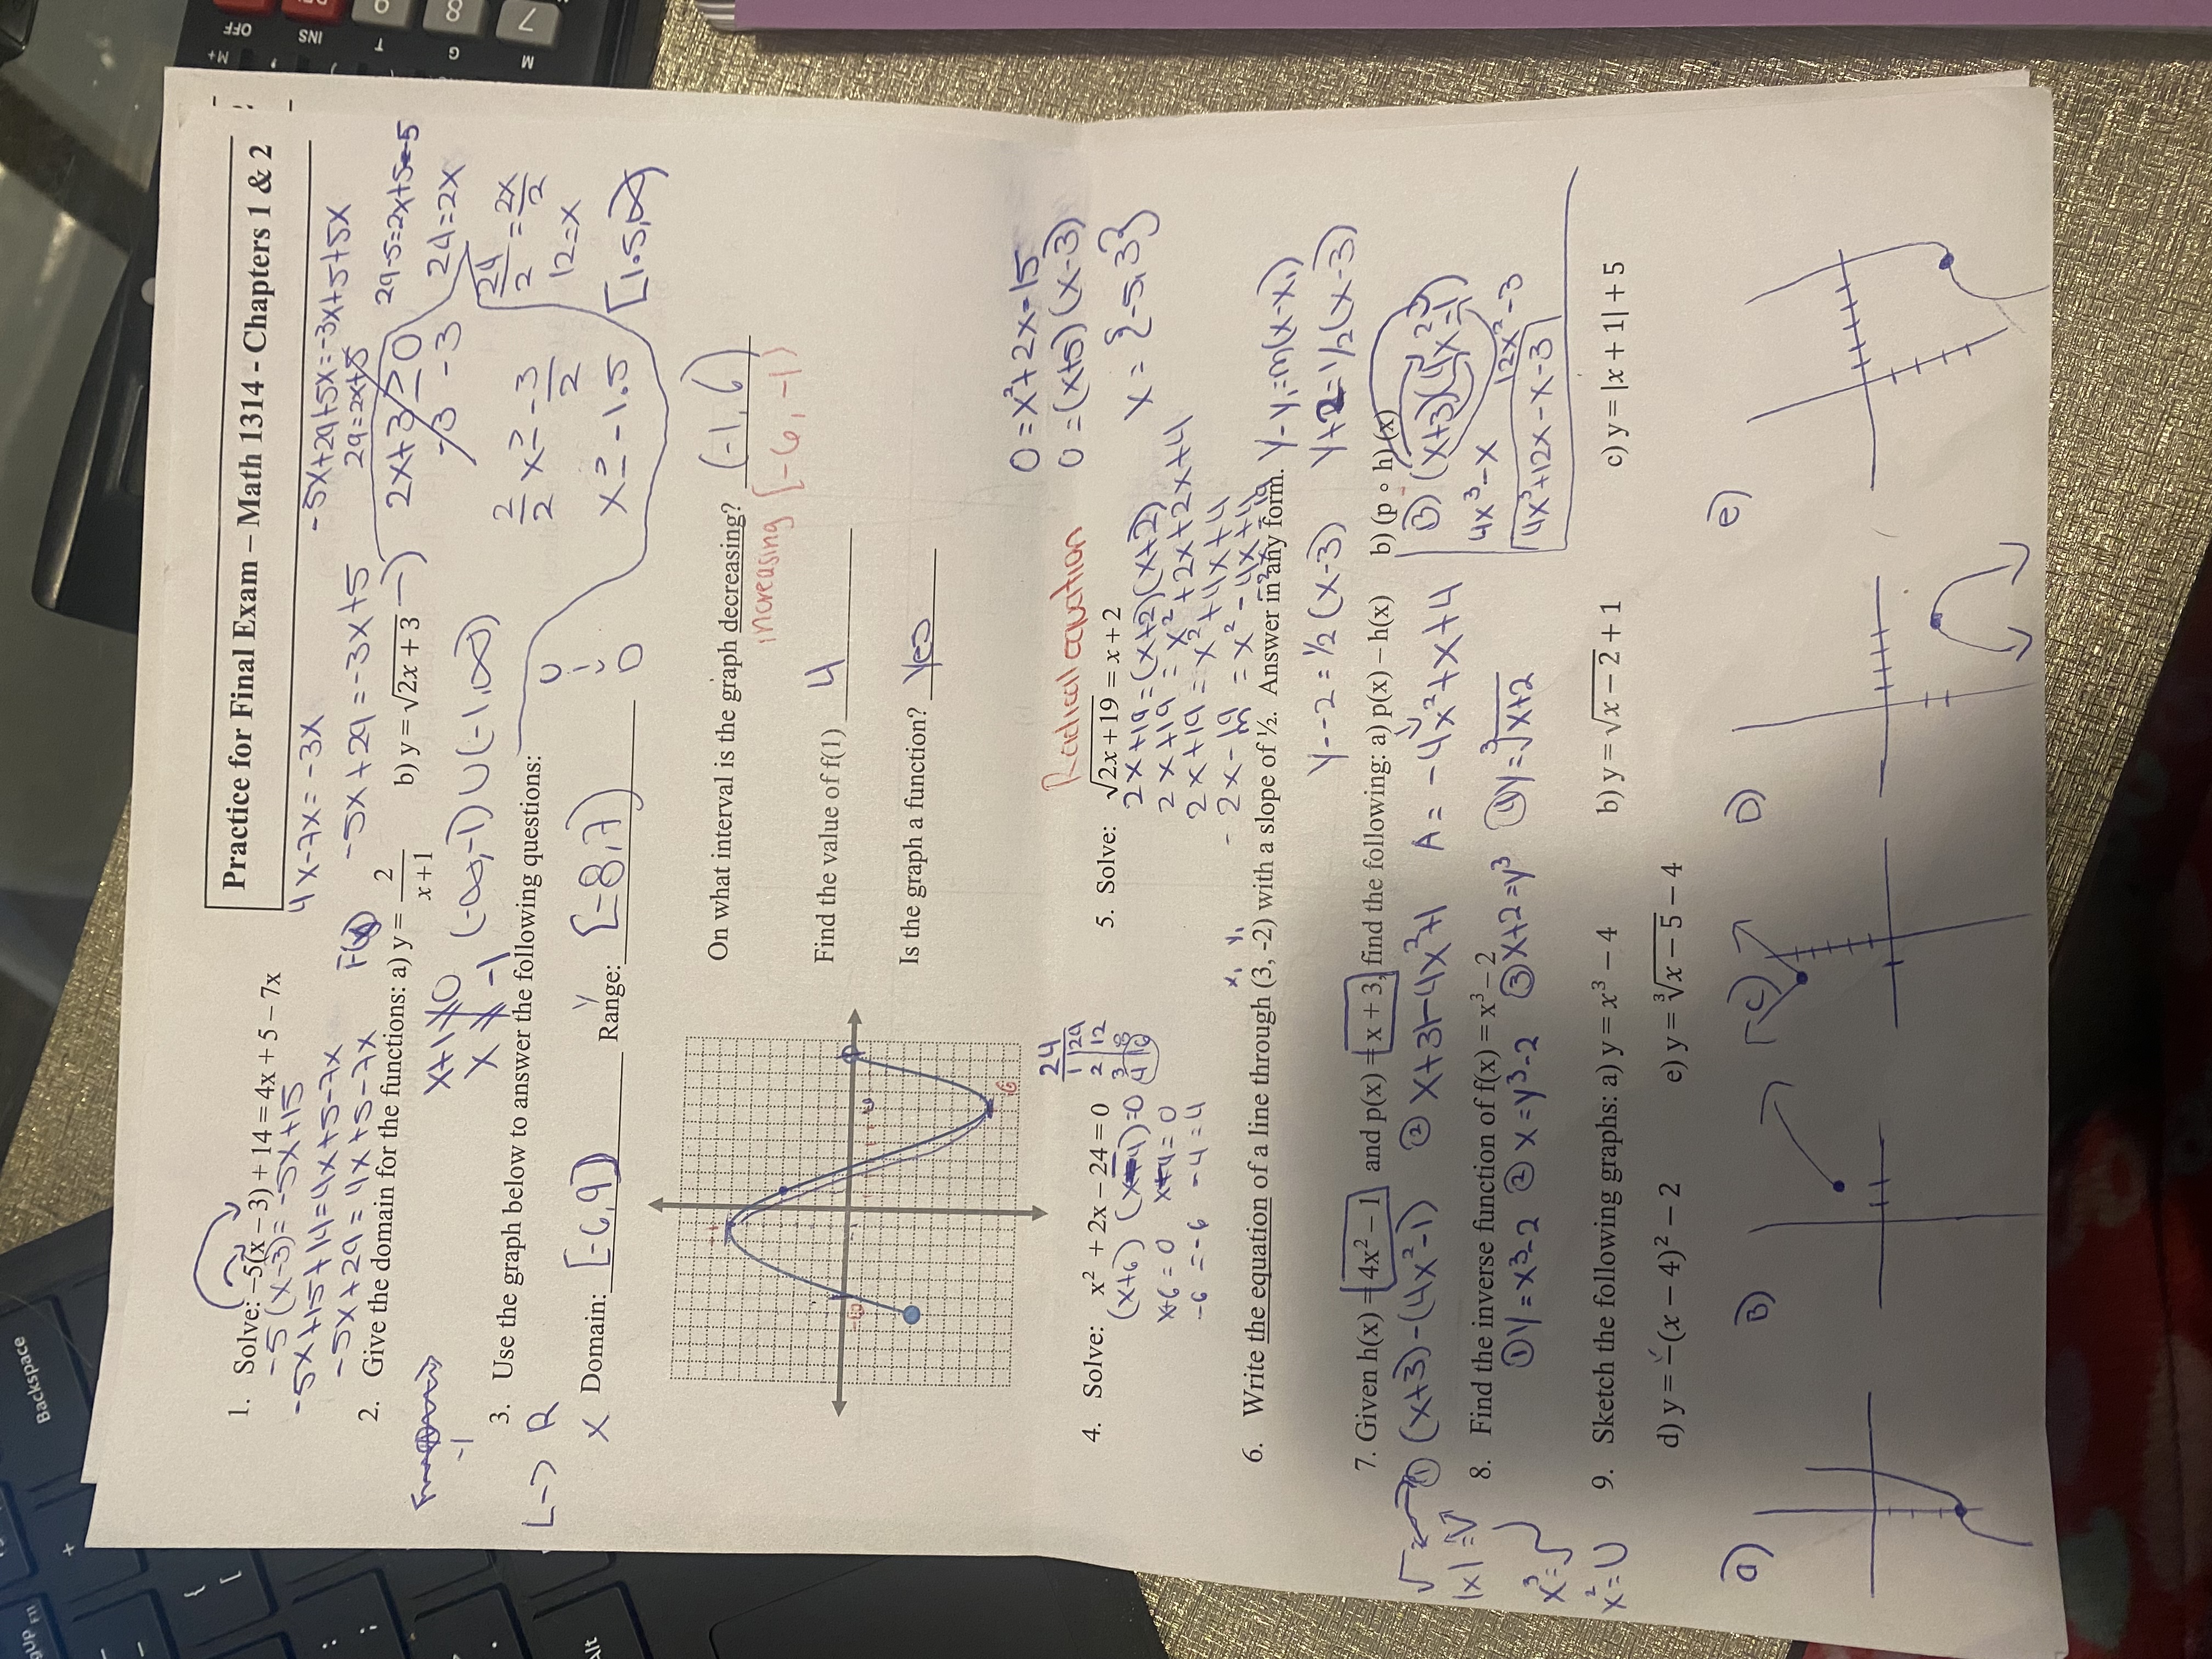 Practice for Final Exam – Math 1314 - Chapters 1 & 2
1. Solve: −5(x − 3) + 14 = 4x + 5 − 7x
4x-7x = -3x
-5x+29+5x=-3x+5+5x
-5(x-3) = -5x+15
29=2x+5
29-5=2x+5-5
-5x+15+14=4x+5-7x
24=2x
-5x+29=4x+5-7x
-5x+29=-3x+5
24/2 = 2x/2
12=x
2. Give the domain for the functions: a) y = 2/(x+1) b) y = √(2x + 3)
x+1≠0
x ≠ -1
(-∞,-1) ∪ (-1,∞)
2x+3≥0
-3 -3
2/2 x≥ -3/2
x≥-1.5
[1.5,∞)
-1
3. Use the graph below to answer the following questions:
L-> R
x Domain: [-6,9) y Range: [-8,7)
On what interval is the graph decreasing? (-1,6)
increasing [-6,-1)
Find the value of f(1) 4
Is the graph a function? yes
4. Solve: x² + 2x − 24 = 0
(x+6) (x-4)=0
x+6=0 x-4=0
-6 =-6 -4=4
24
1|24
2|12
3|8
4|6
Radical equation
5. Solve: √(2x + 19) = x + 2
2x+19=(x+2)(x+2)
2x+19=x²+2x+2x+4
2x+19=x²+4x+4
0=x²+2x-15
0=(x+5)(x-3)
x = {-5,3}
6. Write the equation of a line through (3, -2) with a slope of ½. Answer in any form.
x₁ y₁
y-y₁=m(x-x₁)
y--2 = ½(x-3)
y+2=1/2(x-3)
7. Given h(x) = 4x² − 1 and p(x) = x + 3, find the following: a) p(x) – h(x) b) (p ∘ h)(x)
① (x+3)-(4x²-1) ② x+3-4x²+1 A = -4x²+x+4
B) (x+3)(4x²-1)
4x³-x 12x²-3
4x³+12x-x-3
8. Find the inverse function of f(x) = x³ − 2
① y=x³-2 ② x=y³-2 ③ x+2=y³ ④ y=∛x+2
9. Sketch the following graphs: a) y = x³ − 4 b) y = √(x − 2) + 1 c) y = |x + 1| + 5
d) y = −(x − 4)² − 2 e) y = ∛(x − 5) − 4
|x|=V
x³=
x²=U
a)
B)
C)
D)
e)
Backspace
Alt
OFF
INS
M+
T
G
M
8
7